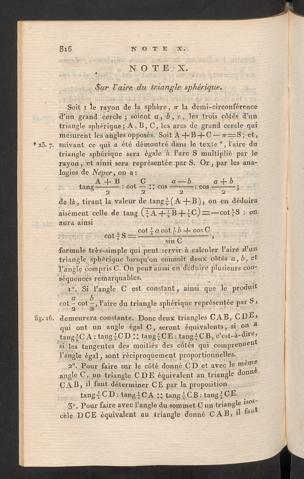 316 NOTE X.
NOTE X.
Sur l'aire du triangle sphérique.
Soit 1 le rayon de la sphère, π la demi-circonférence
d'un grand cercle ; soient a, b, c, les trois côtés d'un
triangle sphérique ; A, B, C, les arcs de grand cercle qui
mesurent les angles opposés. Soit A + B + C — π = S ; et,
* 23. 7. suivant ce qui a été démontré dans le texte *, l'aire du
triangle sphérique sera égale à l'arc S multiplié par le
rayon, et ainsi sera représentée par S. Or, par les ana-
logies de Néper, on a :
tang (A + B)/2 : cot C/2 :: cos (a — b)/2 : cos (a + b)/2 ;
de là, tirant la valeur de tang ½(A + B), on en déduira
aisément celle de tang (½A + ½B + ½C) = — cot ½S : on
aura ainsi
cot ½S = (cot ½ a cot ½ b + cos C)/sin C ,
formule très-simple qui peut servir à calculer l'aire d'un
triangle sphérique lorsqu'on connoît deux côtés a, b, et
l'angle compris C. On peut aussi en déduire plusieurs con-
séquences remarquables.
1°. Si l'angle C est constant, ainsi que le produit
cot a/2 cot b/2, l'aire du triangle sphérique représentée par S,
fig. 16. demeurera constante. Donc deux triangles CAB, CDE,
qui ont un angle égal C, seront équivalents, si on a
tang ½ CA : tang ½ CD :: tang ½ CE : tang ½ CB, c'est-à-dire,
si les tangentes des moitiés des côtés qui comprennent
l'angle égal, sont réciproquement proportionnelles.
2°. Pour faire sur le côté donné CD et avec le même
angle C, un triangle CDE équivalent au triangle donné
CAB, il faut déterminer CE par la proposition
tang ½ CD : tang ½ CA :: tang ½ CB : tang ½ CE
3°. Pour faire avec l'angle du sommet C un triangle isos-
cèle DCE équivalent au triangle donné CAB, il faut